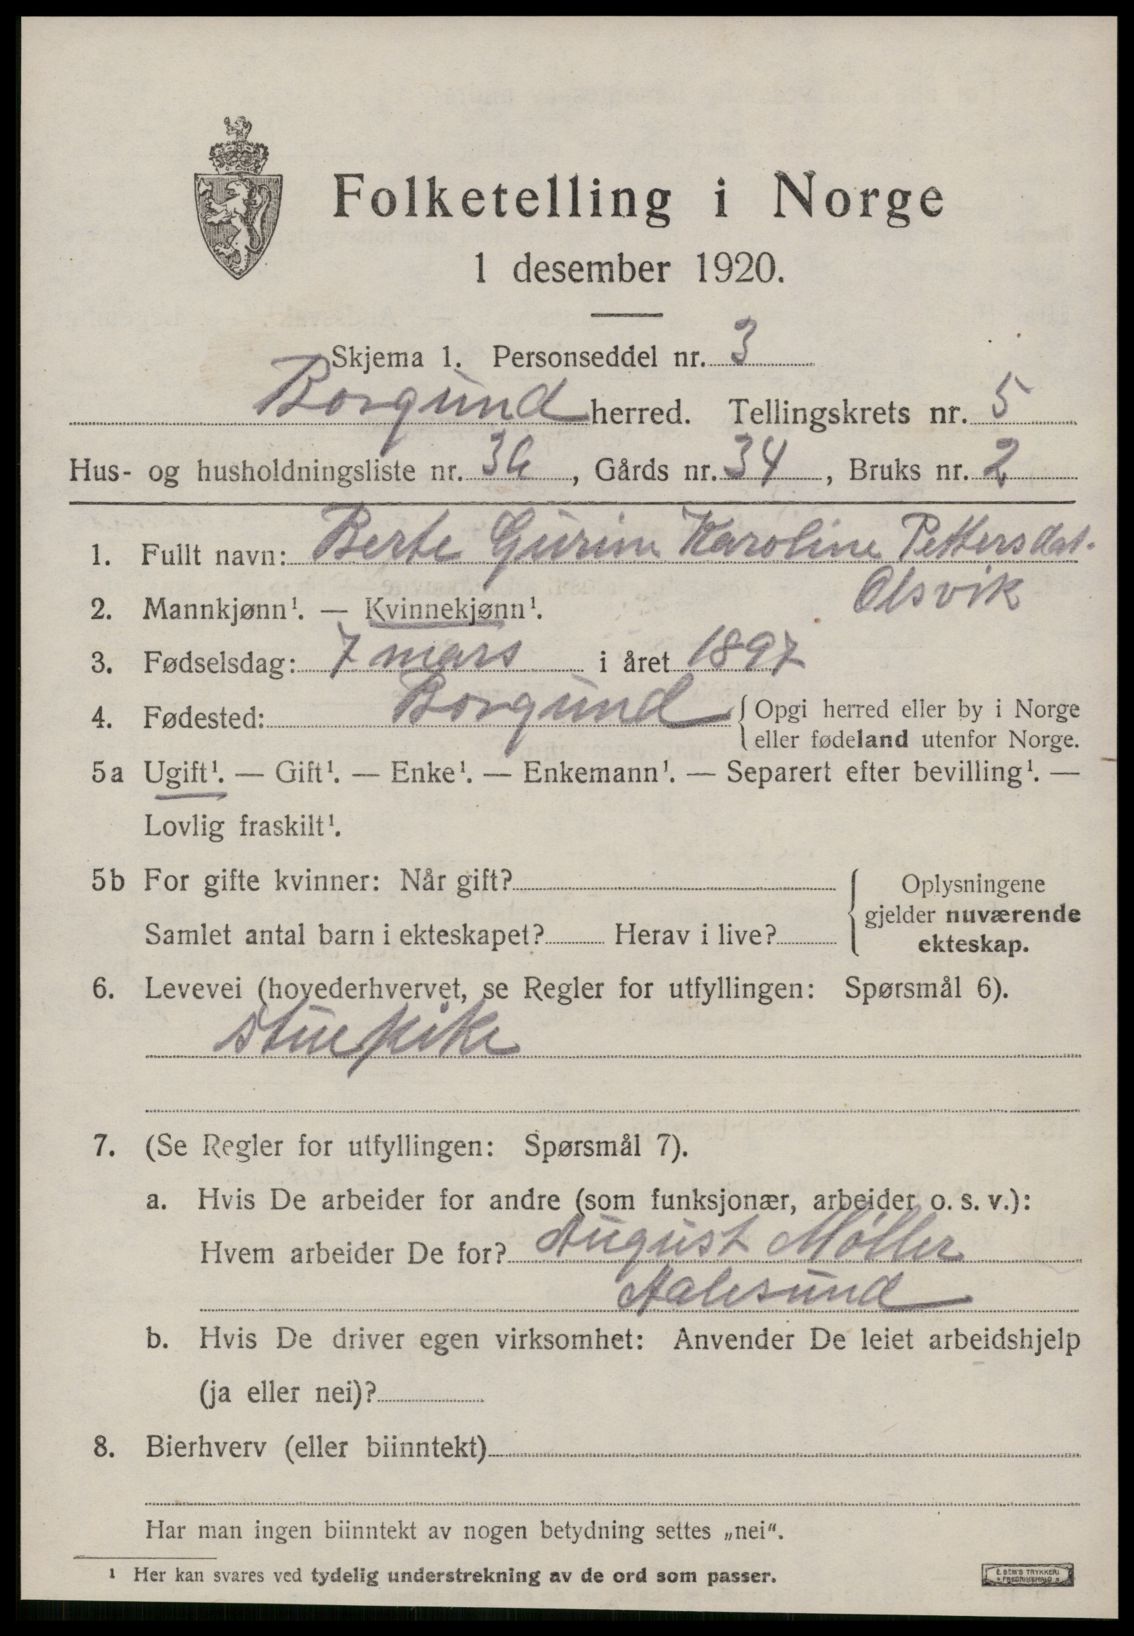 Folketelling i Norge
1 desember 1920.
Skjema 1. Personseddel nr. 3
Borgund herred. Tellingskrets nr. 5
Hus- og husholdningsliste nr. 36, Gårds nr. 34, Bruks nr. 2
1. Fullt navn: Berte Gurine Karoline Pettersdat.
Olsvik
2. Mannkjønn¹. — Kvinnekjønn¹.
3. Fødselsdag: 7 mars i året 1897
4. Fødested: Borgund { Opgi herred eller by i Norge
eller fødeland utenfor Norge.
5a Ugift¹. — Gift¹. — Enke¹. — Enkemann¹. — Separert efter bevilling¹. —
Lovlig fraskilt¹.
5b For gifte kvinner: Når gift? { Oplysningene
gjelder nuværende
Samlet antal barn i ekteskapet? Herav i live? ekteskap.
6. Levevei (hovederhvervet, se Regler for utfyllingen: Spørsmål 6).
stuepike
7. (Se Regler for utfyllingen: Spørsmål 7).
a. Hvis De arbeider for andre (som funksjonær, arbeider o. s. v.):
Hvem arbeider De for? August Møller
Aalesund
b. Hvis De driver egen virksomhet: Anvender De leiet arbeidshjelp
(ja eller nei)?
8. Bierhverv (eller biinntekt)
Har man ingen biinntekt av nogen betydning settes „nei".
¹ Her kan svares ved tydelig understrekning av de ord som passer.